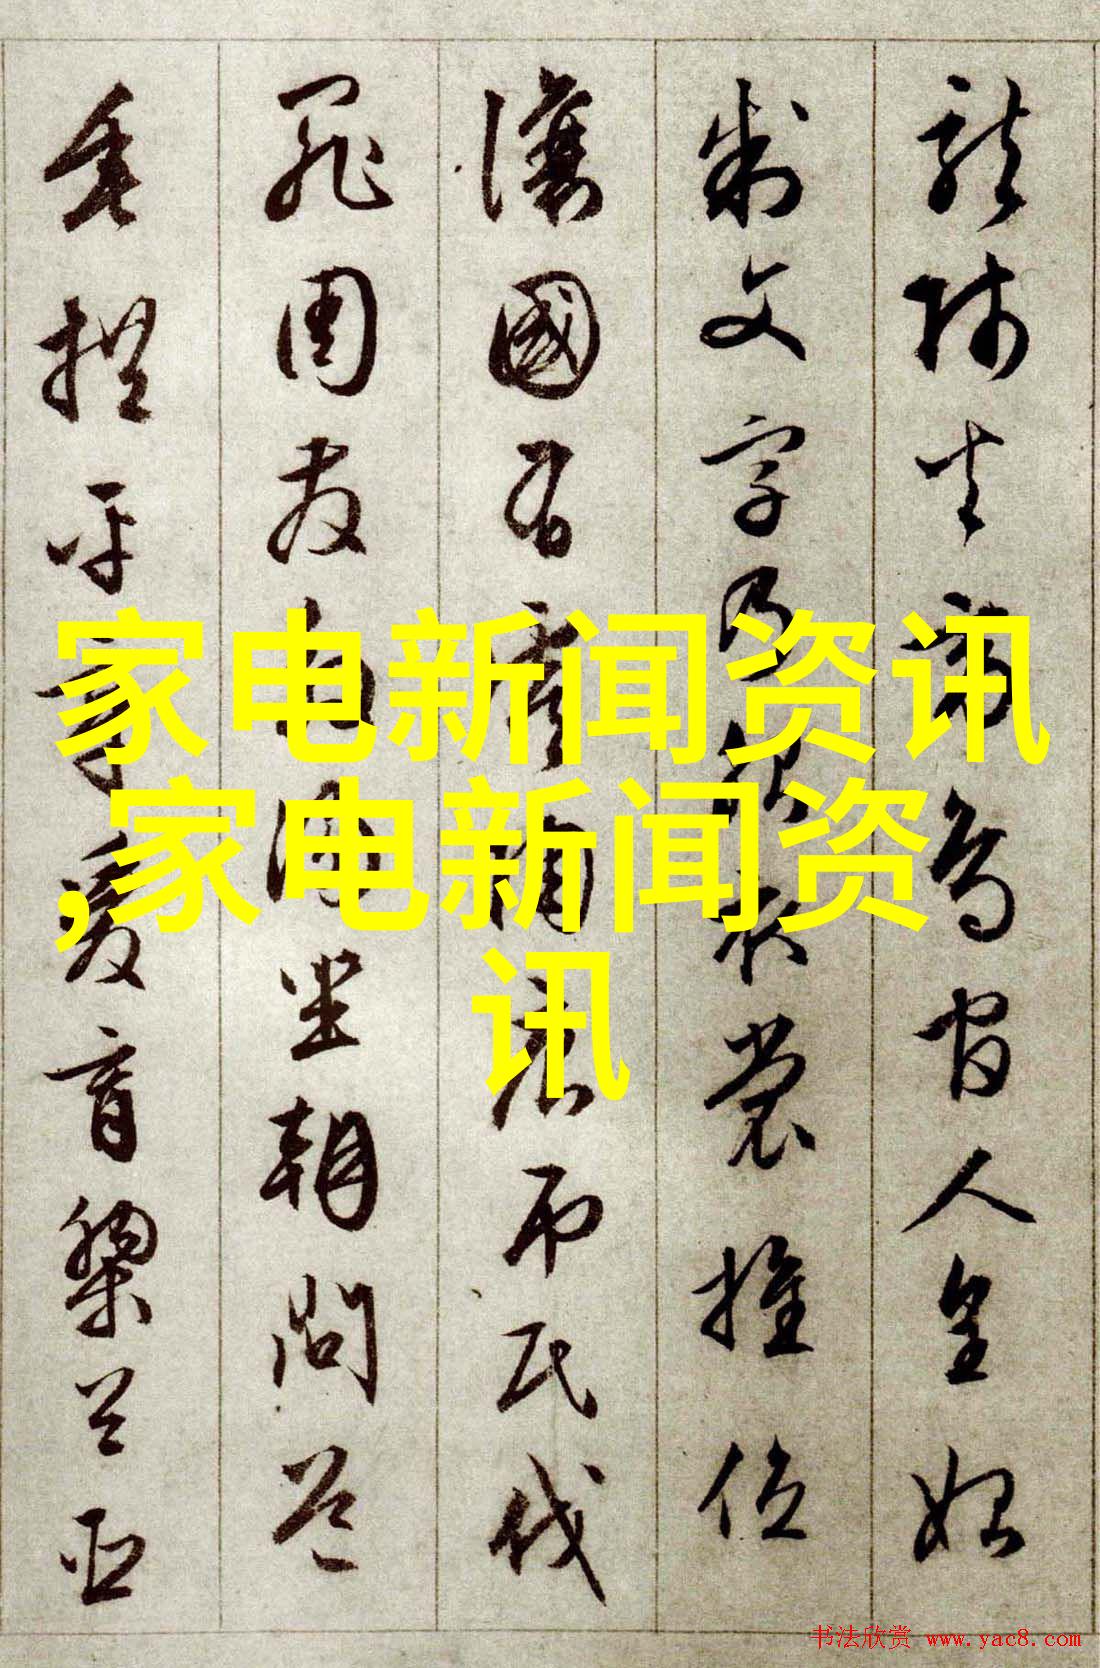 龍師火帝鳥官人皇始
制文字乃服衣裳推位
讓國有虞陶唐弔民伐
罪周發商湯坐朝問道
垂拱平章愛育黎首臣
家电新闻资讯
,家电新闻资
讯
书法欣赏 www.yac8.com